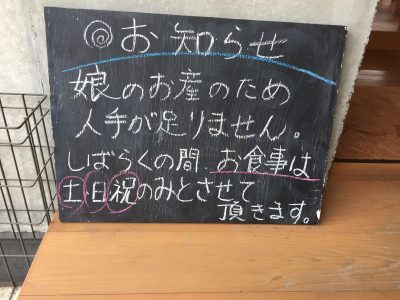 ◎お知らせ
娘のお産のため
人手が足りません。
しばらくの間、お食事は
土日祝のみとさせて
頂きます。